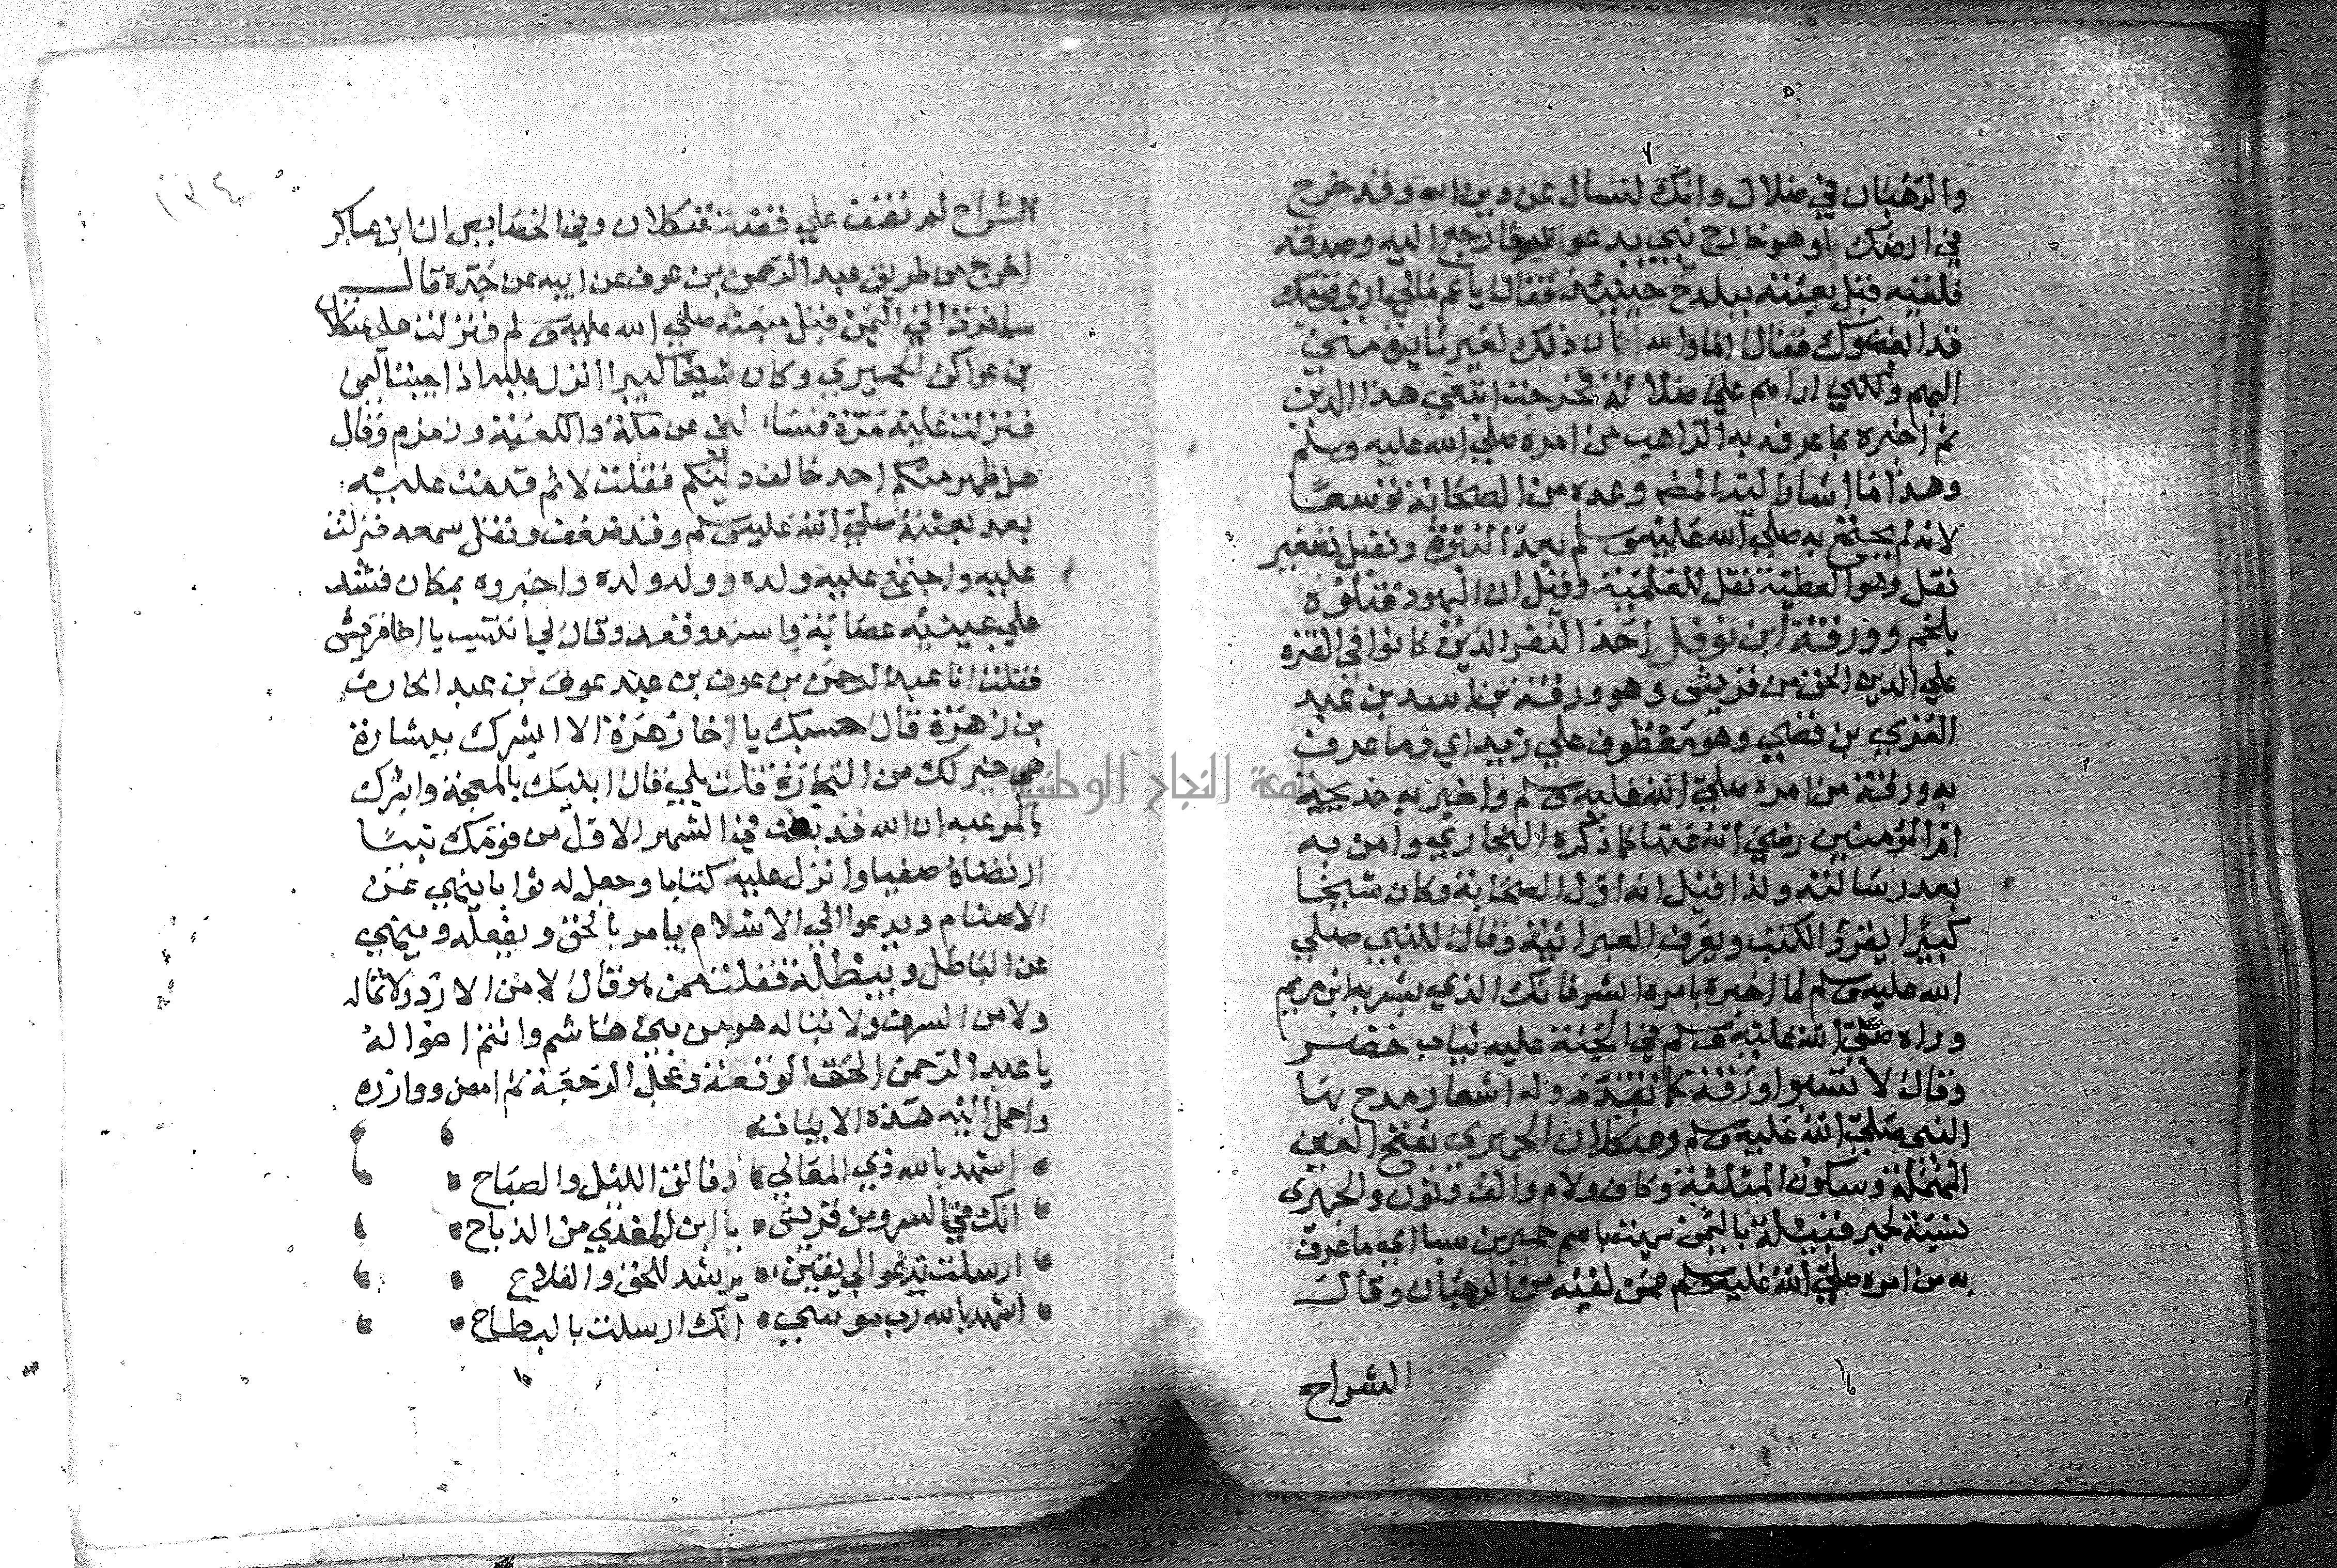 والرهبان في ضلال وانك لتسال عن دين الله وقد خرج
في ارضك او هو خارج نبي يدعو اليه فارجع اليه وصدقه
فلقيه قبل بعثته ببلدح حينئذ فقال يا عم مالي اري قومك
قد ابغضوك فقال اما والله ان ذلك لغير نايرة مني
اليهم ولكني اراهم علي ضلالة فخرجت ابتغي هذا الدين
ثم اخبره بما عرفه به الراهب من امره صلي الله عليه وسلم
وهذا ما اشار اليه المص وعده من الصحابة توسعا
لانه لم يجتمع به صلي الله عليه وسلم بعد النبوة ونفيل تصغير
نفل وهو العطية نقل للعلمية وقيل ان اليهود قتلوه
بلخم وورقة ابن نوفل احد النفر الذين كانوا في الفترة
علي الدين الحق من قريش وهو ورقة بن اسد بن عبد
العزي بن قصي وهو معطوف علي زيد اي وما عرف
به ورقة من امره صلي الله عليه وسلم واخبر به خديجة
ام المؤمنين رضي الله عنها كما ذكره البخاري وامن به
بعد رسالته ولذا قيل انه اول الصحابة وكان شيخا
كبيرا يقرؤ الكتب ويعرف العبرانية وقال للنبي صلي
الله عليه وسلم لما اخبره بامره ابشر فانك الذي بشر به ابن مريم
وراه صلي الله عليه وسلم في الجنة عليه ثياب خضر
وقال لا تسبوا ورقة كما تقدم وله اشعار مدح بها
النبي صلي الله عليه وسلم وعثكلان الحميري بفتح العين
المهملة وسكون المثلثة وكاف ولام والف ونون والحميري
نسبة لحير قبيلة باليمن سميت باسم حمير بن سبا اي ما عرف
به من امره صلي الله عليه وسلم ممن لقيه من الرهبان وقال
الشراح
١٣٤
الشراح لم نقف علي قصة عثكلان وفي الخصايص ان ابن عساكر
اخرج من طريق عبد الرحمن بن عوف عن ابيه عن جده قال
سافرت الي اليمن قبل مبعثه صلي الله عليه وسلم فنزلت علي عثكلان
بن عواكن الحميري وكان شيخا كبيرا انزل عليه اذا جيت اليمن
فنزلت عليه مرة فسالني عن مكة والكعبة وزمزم وقال
هل ظهر منكم احد خالف دينكم فقلت لا ثم قدمت عليه
بعد بعثته صلي الله عليه وسلم وقد ضعف وثقل سمعه فنزلت
عليه واجتمع عليه ولده وولد ولده واخبروه بمكان فشد
علي عينيه عصابة واسند وقعد وقال لي انتسب يا اخا قريش
فقلت انا عبد الرحمن بن عوف بن عبد عوف بن عبد الحارث
بن زهرة قال حسبك يا اخا زهرة الا ابشرك ببشارة
هي خير لك من التجارة قلت بلي قال انبيك بالمعجبة وابشرك
بالمرغبه ان الله قد بعث في الشهر الاول من قومك نبيا
ارتضاه صفيا وانزل عليه كتابا وجعل له ثوابا ينهي عن
الاصنام ويدعو الي الاسلام يامر بالحق ويفعله وينهي
عن الباطل ويبطله فقلت ممن هو قال لا من الازد ولا ثماله
ولا من السرف ولا تباله هو من بني هاشم وانتم اخواله
يا عبد الرحمن اخف الوقعة وعجل الرجعة ثم امض ووازره
واحمل اليه هذه الابيات
اشهد بالله ذي المعالي وفالق الليل والصباح
انك في السرو من قريش يا ابن المفدي من الذباح
ارسلت تدعو الي يقين يرشد للحق والفلاح
اشهد بالله رب موسي انك ارسلت بالبطاح
جامعة النجاح الوطنية